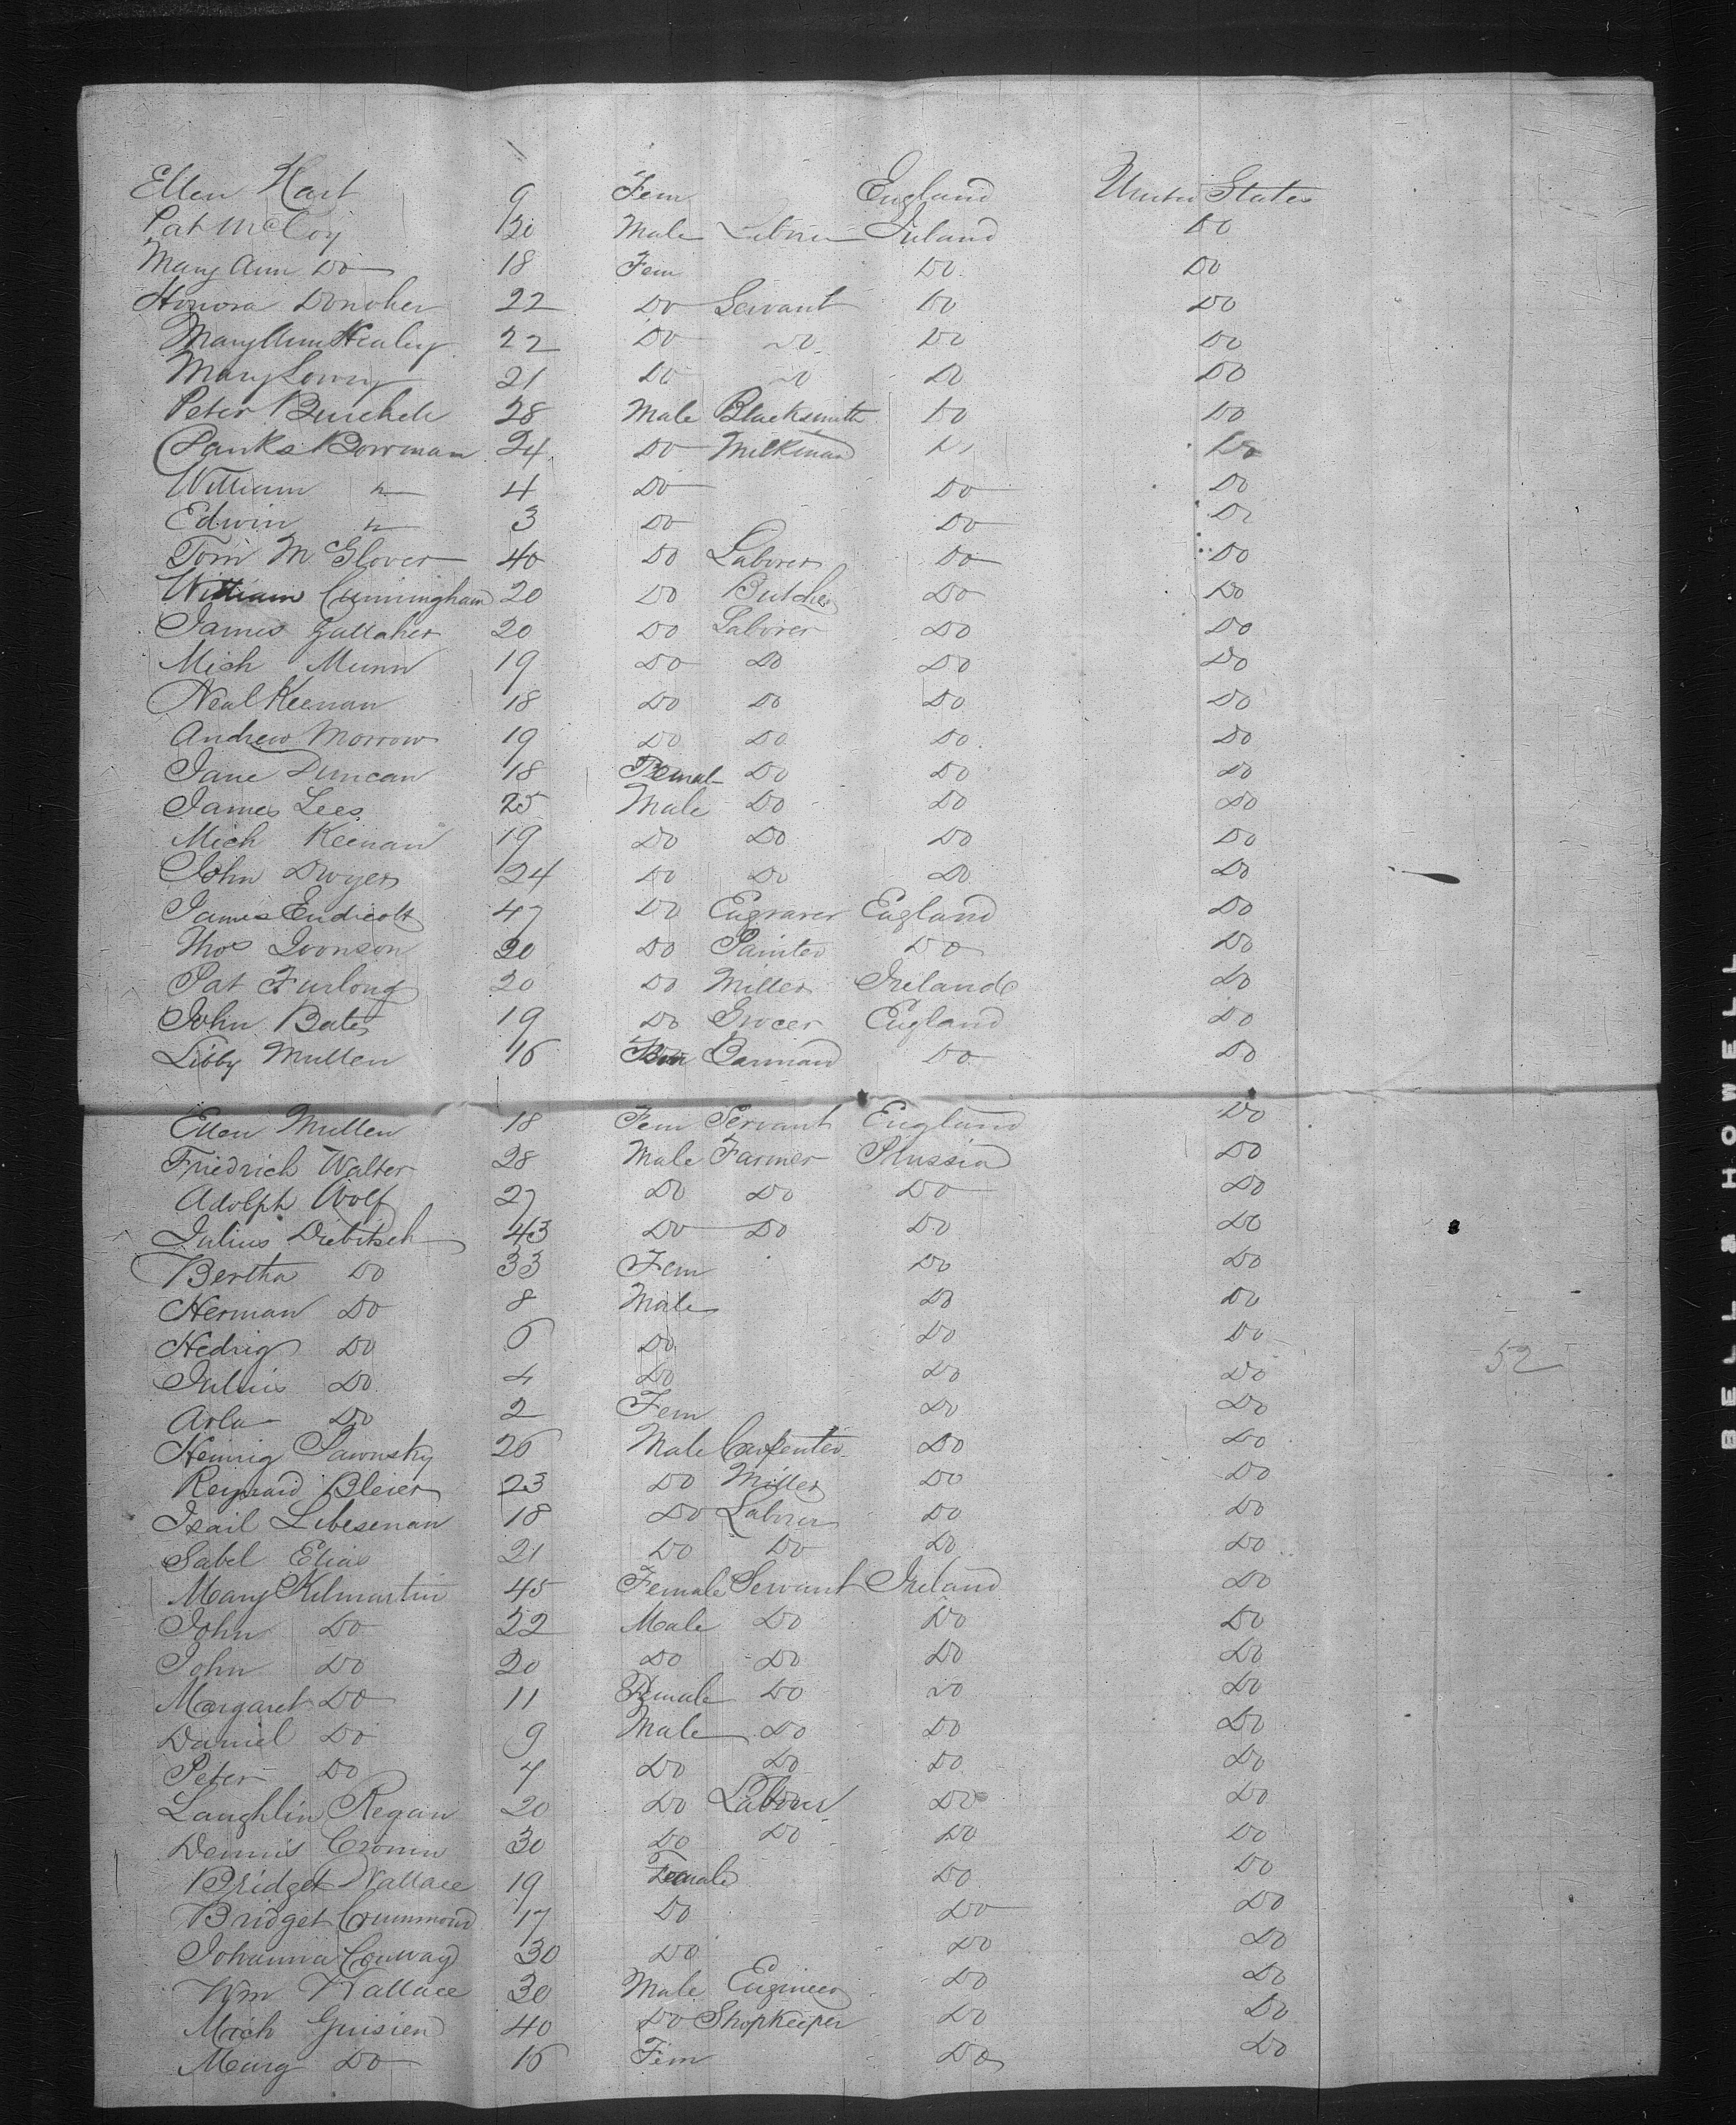 Ellen Hart 9 Fem England United States
Pat McCoy 20 Male Laborer Ireland Do
Mary Ann Do 18 Fem Do Do
Honora Donoher 22 Do Servant Do Do
Mary Ann Healey 22 Do Do Do Do
Mary Lowry 21 Do Do Do Do
Peter 28 Male Blacksmith Do Do
Bowman 24 Do Milkman Do Do
William " 4 Do Do Do
Edwin " 3 Do Do Do
Tom McGlover 40 Do Laborer Do Do
William Cunningham 20 Do Butcher Do Do
James Gallaher 20 Do Laborer Do Do
Mich Munn 19 Do Do Do Do
Neal Keenan 18 Do Do Do Do
Andrew Morrow 19 Do Do Do Do
Jane Duncan 18 Femal Do Do Do
James Lees 25 Male Do Do Do
Mich Keenan 19 Do Do Do Do
John Dwyer 24 Do Do Do Do
James Endicott 47 Do Engraver England Do
Thos Joonson 20 Do Painter Do Do
Pat Furlong 20 Do Miller Ireland Do
John Bates 19 Do Grocer England Do
Libby Mullen 16 Fem Barmaid Do Do
Ellen Mullen 18 Fem Servant England Do
Friedrich Walter 28 Male Farmer Prussia Do
Adolph Wolf 27 Do Do Do Do
Julius Diebitsch 43 Do Do Do Do
Bertha Do 33 Fem Do Do
Herman Do 8 Male Do Do
Hedrig Do 6 Do Do Do
Julius Do 4 Do Do Do
52
Arla Do 2 Fem Do Do
Heinrig Sawnsky 26 Male Carpenter Do Do
Bleier 23 Do Miller Do Do
Isail Libeseman 18 Do Laborer Do Do
Sabel Elias 21 Do Do Do Do
Mary Kilmartin 45 Female Servant Ireland Do
John Do 22 Male Do Do Do
John Do 20 Do Do Do Do
Margaret Do 11 Female Do Do Do
Daniel Do 9 Male Do Do Do
Peter Do 7 Do Do Do Do
Laughlin Regan 20 Do Laborer Do Do
Dennis Cronin 30 Do Do Do Do
Bridget Wallace 19 Female Do Do
Bridget Crummond 17 Do Do Do
Johanna Conway 30 Do Do Do
Wm Wallace 30 Male Engineer Do Do
Mich Guisien 40 Do Shopkeeper Do Do
Marg Do 16 Fem Do Do
BELL & HOWELL